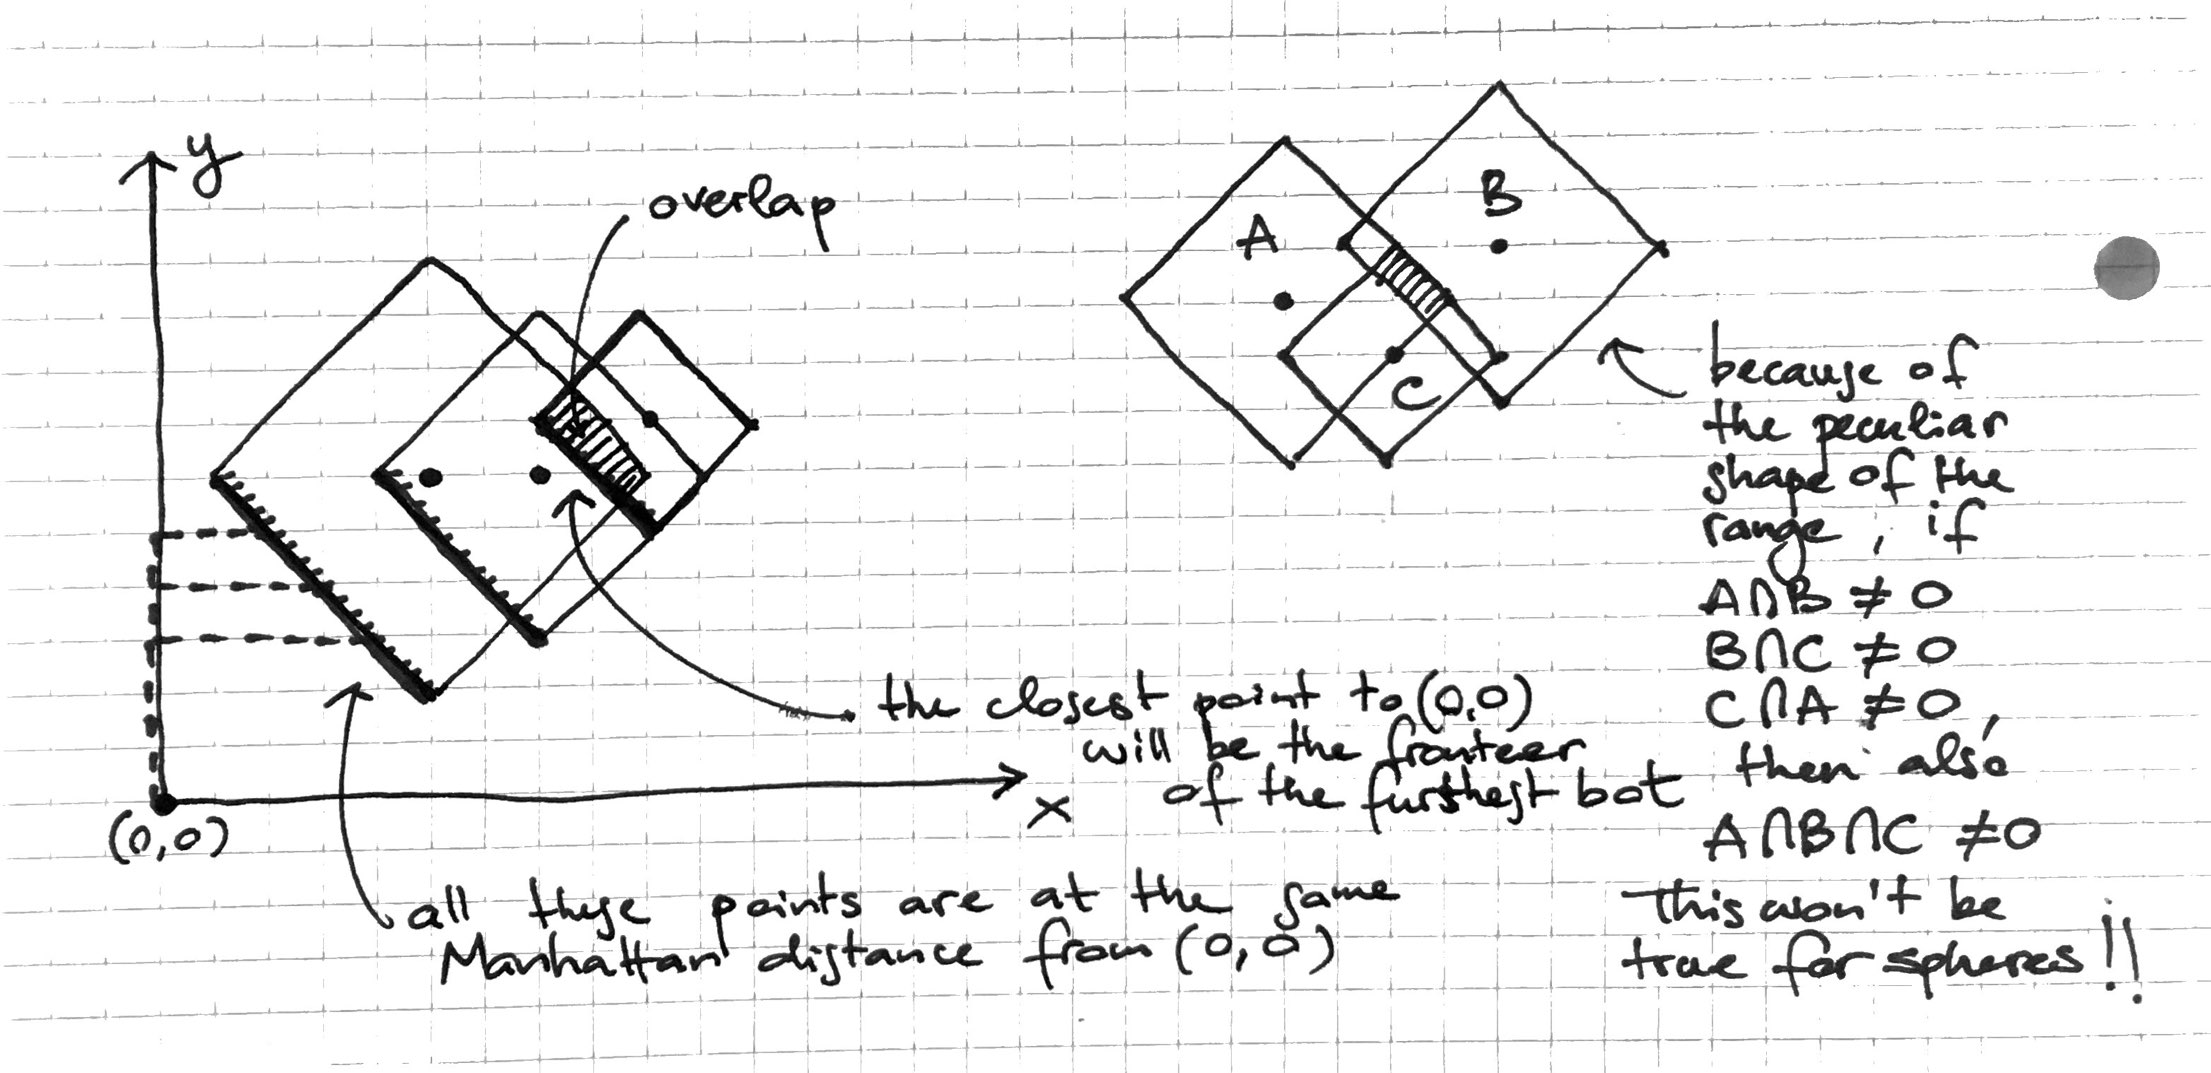 y
overlap
the closest point to (0,0)
will be the fronteer
of the furthest bot
x
(0,0)
all these points are at the same
Manhattan distance from (0,0)
A
B
C
because of
the peculiar
shape of the
range, if
A∩B ≠ 0
B∩C ≠ 0
C∩A ≠ 0,
then also
A∩B∩C ≠0
This won't be
true for spheres!!